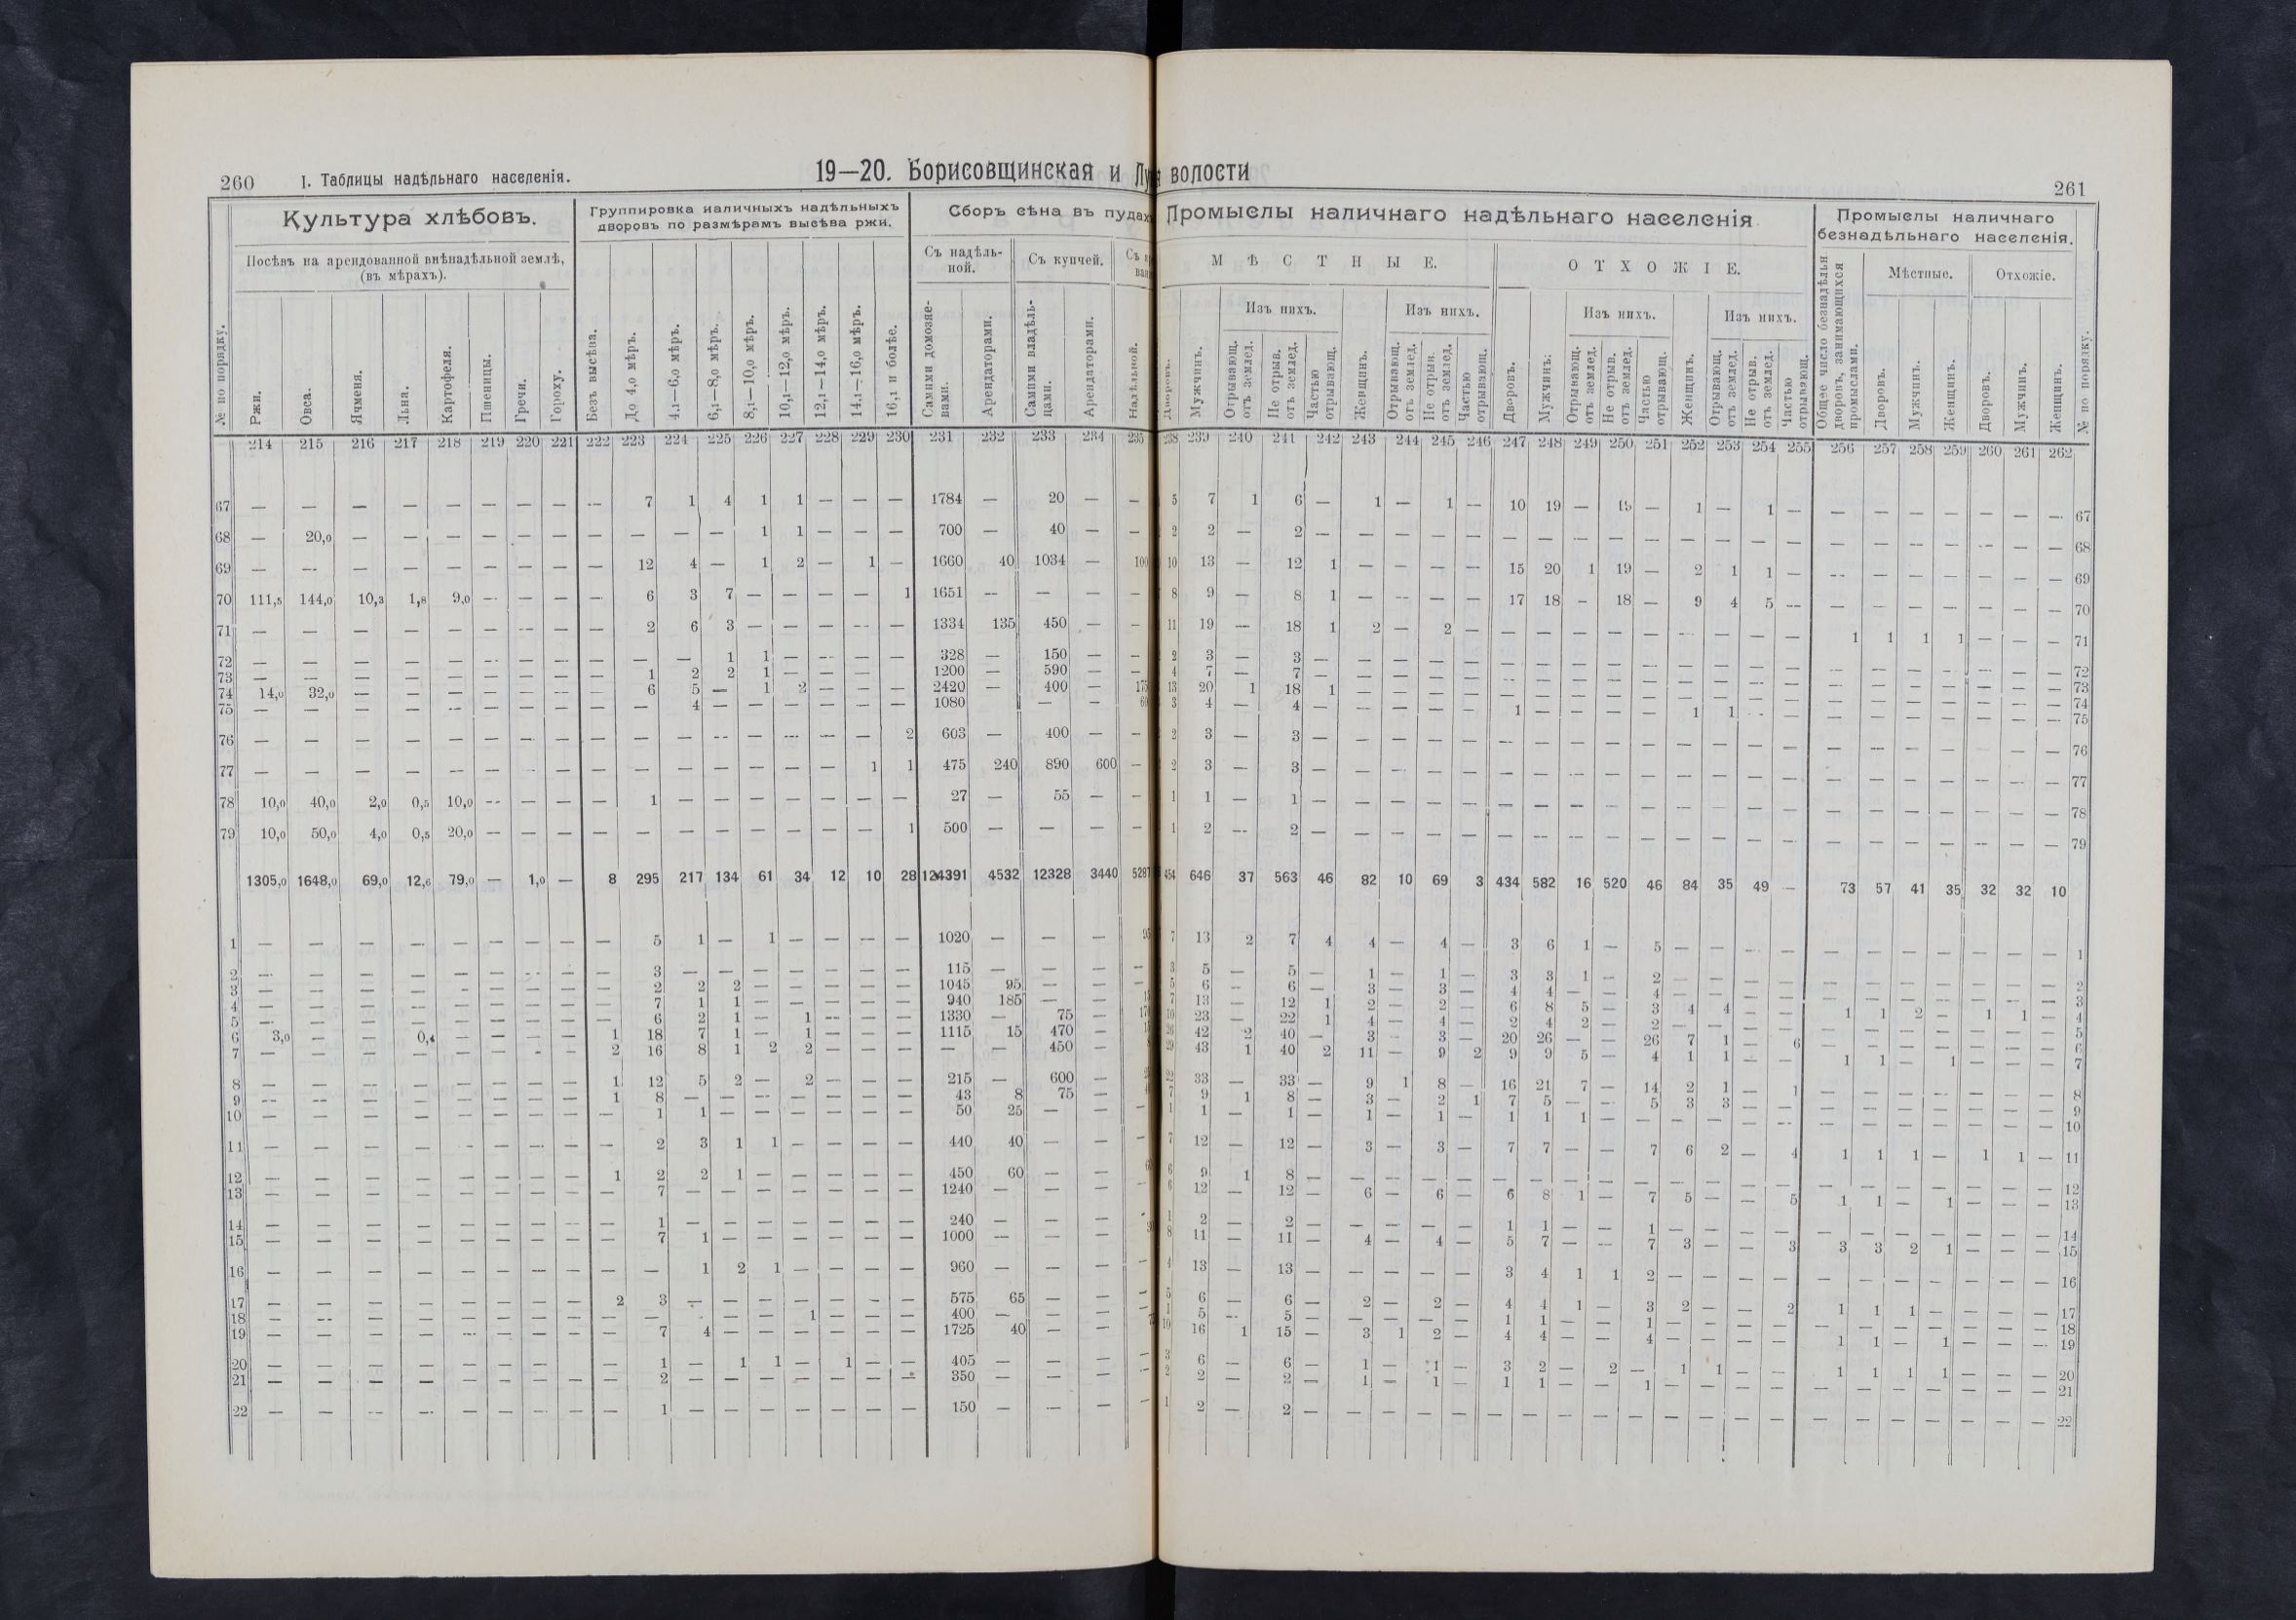 260 I. Таблицы надѣльнаго населенія. 19—20. Борисовщинская и волости 261
Культура хлѣбовъ. Группировка наличныхъ надѣльныхъ дворовъ по размѣрамъ высѣва ржи. Сборъ сѣна въ пудахъ Промыслы наличнаго надѣльнаго населенія. Промыслы наличнаго безнадѣльнаго населенія.
Посѣвъ на арендованной внѣнадѣльной землѣ, (въ мѣрахъ). Съ надѣльной. Съ купчей. МѢСТНЫЕ. ОТХОЖІЕ. Мѣстные. Отхожіе.
Изъ нихъ. Изъ нихъ. Изъ нихъ. Изъ нихъ.
№ по порядку. Ржи. Овса. Ячменя. Льна. Картофеля. Пшеницы. Гречи. Гороху. Безъ высѣва. До 4,0 мѣръ. 4,1—6,0 мѣръ. 6,1—8,0 мѣръ. 8,1—10,0 мѣръ. 10,1—12,0 мѣръ. 12,1—14,0 мѣръ. 14,1—16,0 мѣръ. 16,1 и болѣе. Сами домохозяевами. Арендаторами. Сами владѣльцами. Арендаторами. Надѣльной. Дворовъ. Мужчинъ. Отрывающ. отъ землед. Не отрыв. отъ землед. Частью отрывающ. Женщинъ. Отрывающ. отъ землед. Не отрыв. отъ землед. Частью отрывающ. Дворовъ. Мужчинъ. Отрывающ. отъ землед. Не отрыв. отъ землед. Частью отрывающ. Женщинъ. Отрывающ. отъ землед. Не отрыв. отъ землед. Частью отрывающ. Общее число безнадѣльн дворовъ, занимающихся промыслами. Дворовъ. Мужчинъ. Женщинъ. Дворовъ. Мужчинъ. Женщинъ. № по порядку.
214 215 216 217 218 219 220 221 222 223 224 225 226 227 228 229 230 231 232 233 234 235 238 239 240 241 242 243 244 245 246 247 248 249 250 251 252 253 254 255 256 257 258 259 260 261 262
67 — — — — — — — — — 7 1 4 1 1 — — — 1784 — 20 — — 5 7 1 6 — 1 — 1 — 10 19 — 19 — 1 — 1 — — — — — — — — 67
68 — 20,0 — — — — — — — — — — 1 1 — — — 700 — 40 — — 2 2 — 2 — — — — — — — — — — — — — — — — — — — — — 68
69 — — — — — — — — — 12 4 — 1 2 — 1 — 1660 40 1034 — 100 10 13 — 12 1 — — — — 15 20 1 19 — 2 1 1 — — — — — — — — 69
70 111,5 144,0 10,3 1,8 9,0 — — — — 6 3 7 — — — — 1 1651 — — — — 8 9 — 8 1 — — — — 17 18 — 18 — 9 4 5 — — — — — — — — 70
71 — — — — — — — — — 2 6 3 — — — — — 1334 135 450 — — 11 19 — 18 1 2 — 2 — — — — — — — — — — 1 1 1 1 — — — 71
72 — — — — — — — — — — — 1 1 — — — — 328 — 150 — — 2 3 — 3 — — — — — — — — — — — — — — — — — — — — — 72
73 — — — — — — — — — 1 2 2 1 — — — — 1200 — 590 — — 4 7 — 7 — — — — — — — — — — — — — — — — — — — — — 73
74 14,0 32,0 — — — — — — — 6 5 — 1 2 — — — 2420 — 400 — 175 13 20 1 18 1 — — — — — — — — — — — — — — — — — — — — 74
75 — — — — — — — — — — 4 — — — — — — 1080 — — 60 3 4 — 4 — — — — — 1 — — — — 1 1 — — — — — — — — — 75
76 — — — — — — — — — — — — — — — — 2 603 — 400 — — 2 3 — 3 — — — — — — — — — — — — — — — — — — — — — 76
77 — — — — — — — — — — — — — — — 1 1 475 240 890 600 — 2 3 — 3 — — — — — — — — — — — — — — — — — — — — — 77
78 10,0 40,0 2,0 0,5 10,0 — — — — 1 — — — — — — — 27 — 55 — — 1 1 — 1 — — — — — — — — — — — — — — — — — — — — — 78
79 10,0 50,0 4,0 0,5 20,0 — — — — — — — — — — — 1 500 — — — — 1 2 — 2 — — — — — — — — — — — — — — — — — — — — — 79
1305,0 1648,0 69,0 12,6 79,0 — 1,0 — 8 295 217 134 61 34 12 10 28 124391 4532 12328 3440 5287 454 646 37 563 46 82 10 69 3 434 582 16 520 46 84 35 49 — 73 57 41 35 32 32 10
1 — — — — — — — — — 5 1 — 1 — — — — 1020 — — — 95 7 13 2 7 4 4 — 4 — 3 6 1 — 5 — — — — — — — — — — — 1
2 — — — — — — — — — 3 — — — — — — — 115 — — — — 3 5 — 5 — 1 — 1 — 3 3 1 — 2 — — — — — — — — — — — 2
3 — — — — — — — — — 2 2 2 — — — — — 1045 95 — — — 5 6 — 6 — 3 — 3 — 4 4 — — 4 — — — — — — — — — — — 3
4 — — — — — — — — — 7 1 1 — — — — — 940 185 — — 7 13 — 12 1 2 — 2 — 6 8 5 — 3 4 4 — — 1 1 2 — 1 1 — 4
5 — — — — — — — — — 6 2 1 — 1 — — — 1330 — 75 — 10 23 — 22 1 4 — 4 — 2 4 2 — 2 — — — — — — — — — — — 5
6 3,0 — — 0,4 — — — — 1 18 7 1 — 1 — — — 1115 15 470 — 26 42 2 40 — 3 — 3 — 20 26 — — 26 7 1 — 6 — — — — — — — 6
7 — — — — — — — — 2 16 8 1 2 2 — — — — — 450 — 29 43 1 40 2 11 — 9 2 9 9 5 — 4 1 1 — — 1 1 — 1 — — — 7
8 — — — — — — — — 1 12 5 2 — 2 — — — 215 — 600 — 33 — 33 — 9 1 8 — 16 21 7 — 14 2 1 — 1 — — — — — — — 8
9 — — — — — — — — 1 8 — — — — — — — 43 8 75 — 9 1 8 — 3 — 2 1 7 5 — — 5 3 3 — — — — — — — — — 9
10 — — — — — — — — — 1 1 — — — — — — 50 25 — — — 1 1 — 1 — 1 — 1 — 1 1 1 — — — — — — — — — — — — — 10
11 — — — — — — — — — 2 3 1 1 — — — — 440 40 — — — 7 12 — 12 — 3 — 3 — 7 7 — — 7 6 2 — 4 1 1 1 — 1 1 — 11
12 — — — — — — — — 1 2 2 1 — — — — — 450 60 — — 6 9 1 8 — — — — — — — — — — — — — — — — — — — — — 12
13 — — — — — — — — — 7 — — — — — — — 1240 — — — — 6 12 — 12 — 6 — 6 — 6 8 1 — 7 5 — — 5 1 1 — 1 — — — 13
14 — — — — — — — — — 1 — — — — — — — 240 — — — — 1 2 — 2 — — — — — 1 1 — — 1 — — — — — — — — — — — 14
15 — — — — — — — — — 7 1 — — — — — — 1000 — — — 8 11 — 11 — 4 — 4 — 5 7 — — 7 3 — — 3 3 3 2 1 — — — 15
16 — — — — — — — — — — 1 2 1 — — — — 960 — — — — 4 13 — 13 — — — — — 3 4 1 1 2 — — — — — — — — — — — 16
17 — — — — — — — — 2 3 — — — — — — — 575 65 — — — 5 6 — 6 — 2 — 2 — 4 4 1 — 3 2 — — 2 1 1 1 — — — — 17
18 — — — — — — — — — — — — — — 1 — — 400 — — — 1 5 — 5 — — — — — 1 1 — — 1 — — — — — — — — — — — 18
19 — — — — — — — — — 7 4 — — — — — — 1725 40 — — 10 16 1 15 — 3 1 2 — 4 4 — — 4 — — — — 1 1 — 1 — — — 19
20 — — — — — — — — — 1 — 1 1 — 1 — — 405 — — — — 3 6 — 6 — 1 — 1 — 3 2 — 2 — 1 1 — — 1 1 1 1 — — — 20
21 — — — — — — — — — 2 — — — — — — — 350 — — — — 2 2 — 2 — 1 — 1 — 1 1 — — 1 — — — — — — — — — — — 21
22 — — — — — — — — — 1 — — — — — — — 150 — — — — 1 2 — 2 — — — — — — — — — — — — — — — — — — — — — 22